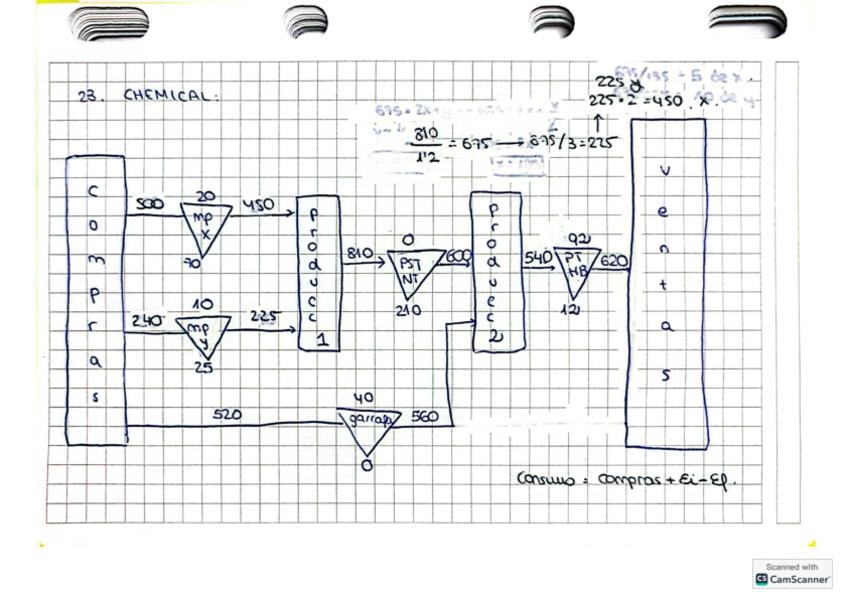 23. CHEMICAL:
225 y
225·2=450. x.
810/1'2 = 675 → 675/3=225
Compras
500
20
mp x
70
450
240
10
mp y
25
225
520
40
garrafas
0
560
Producc 1
810
0
PST NT
210
600
Producc 2
540
92
PT HB
12
620
Ventas
Consumo = compras + Ei - Ef.
Scanned with
CS CamScanner